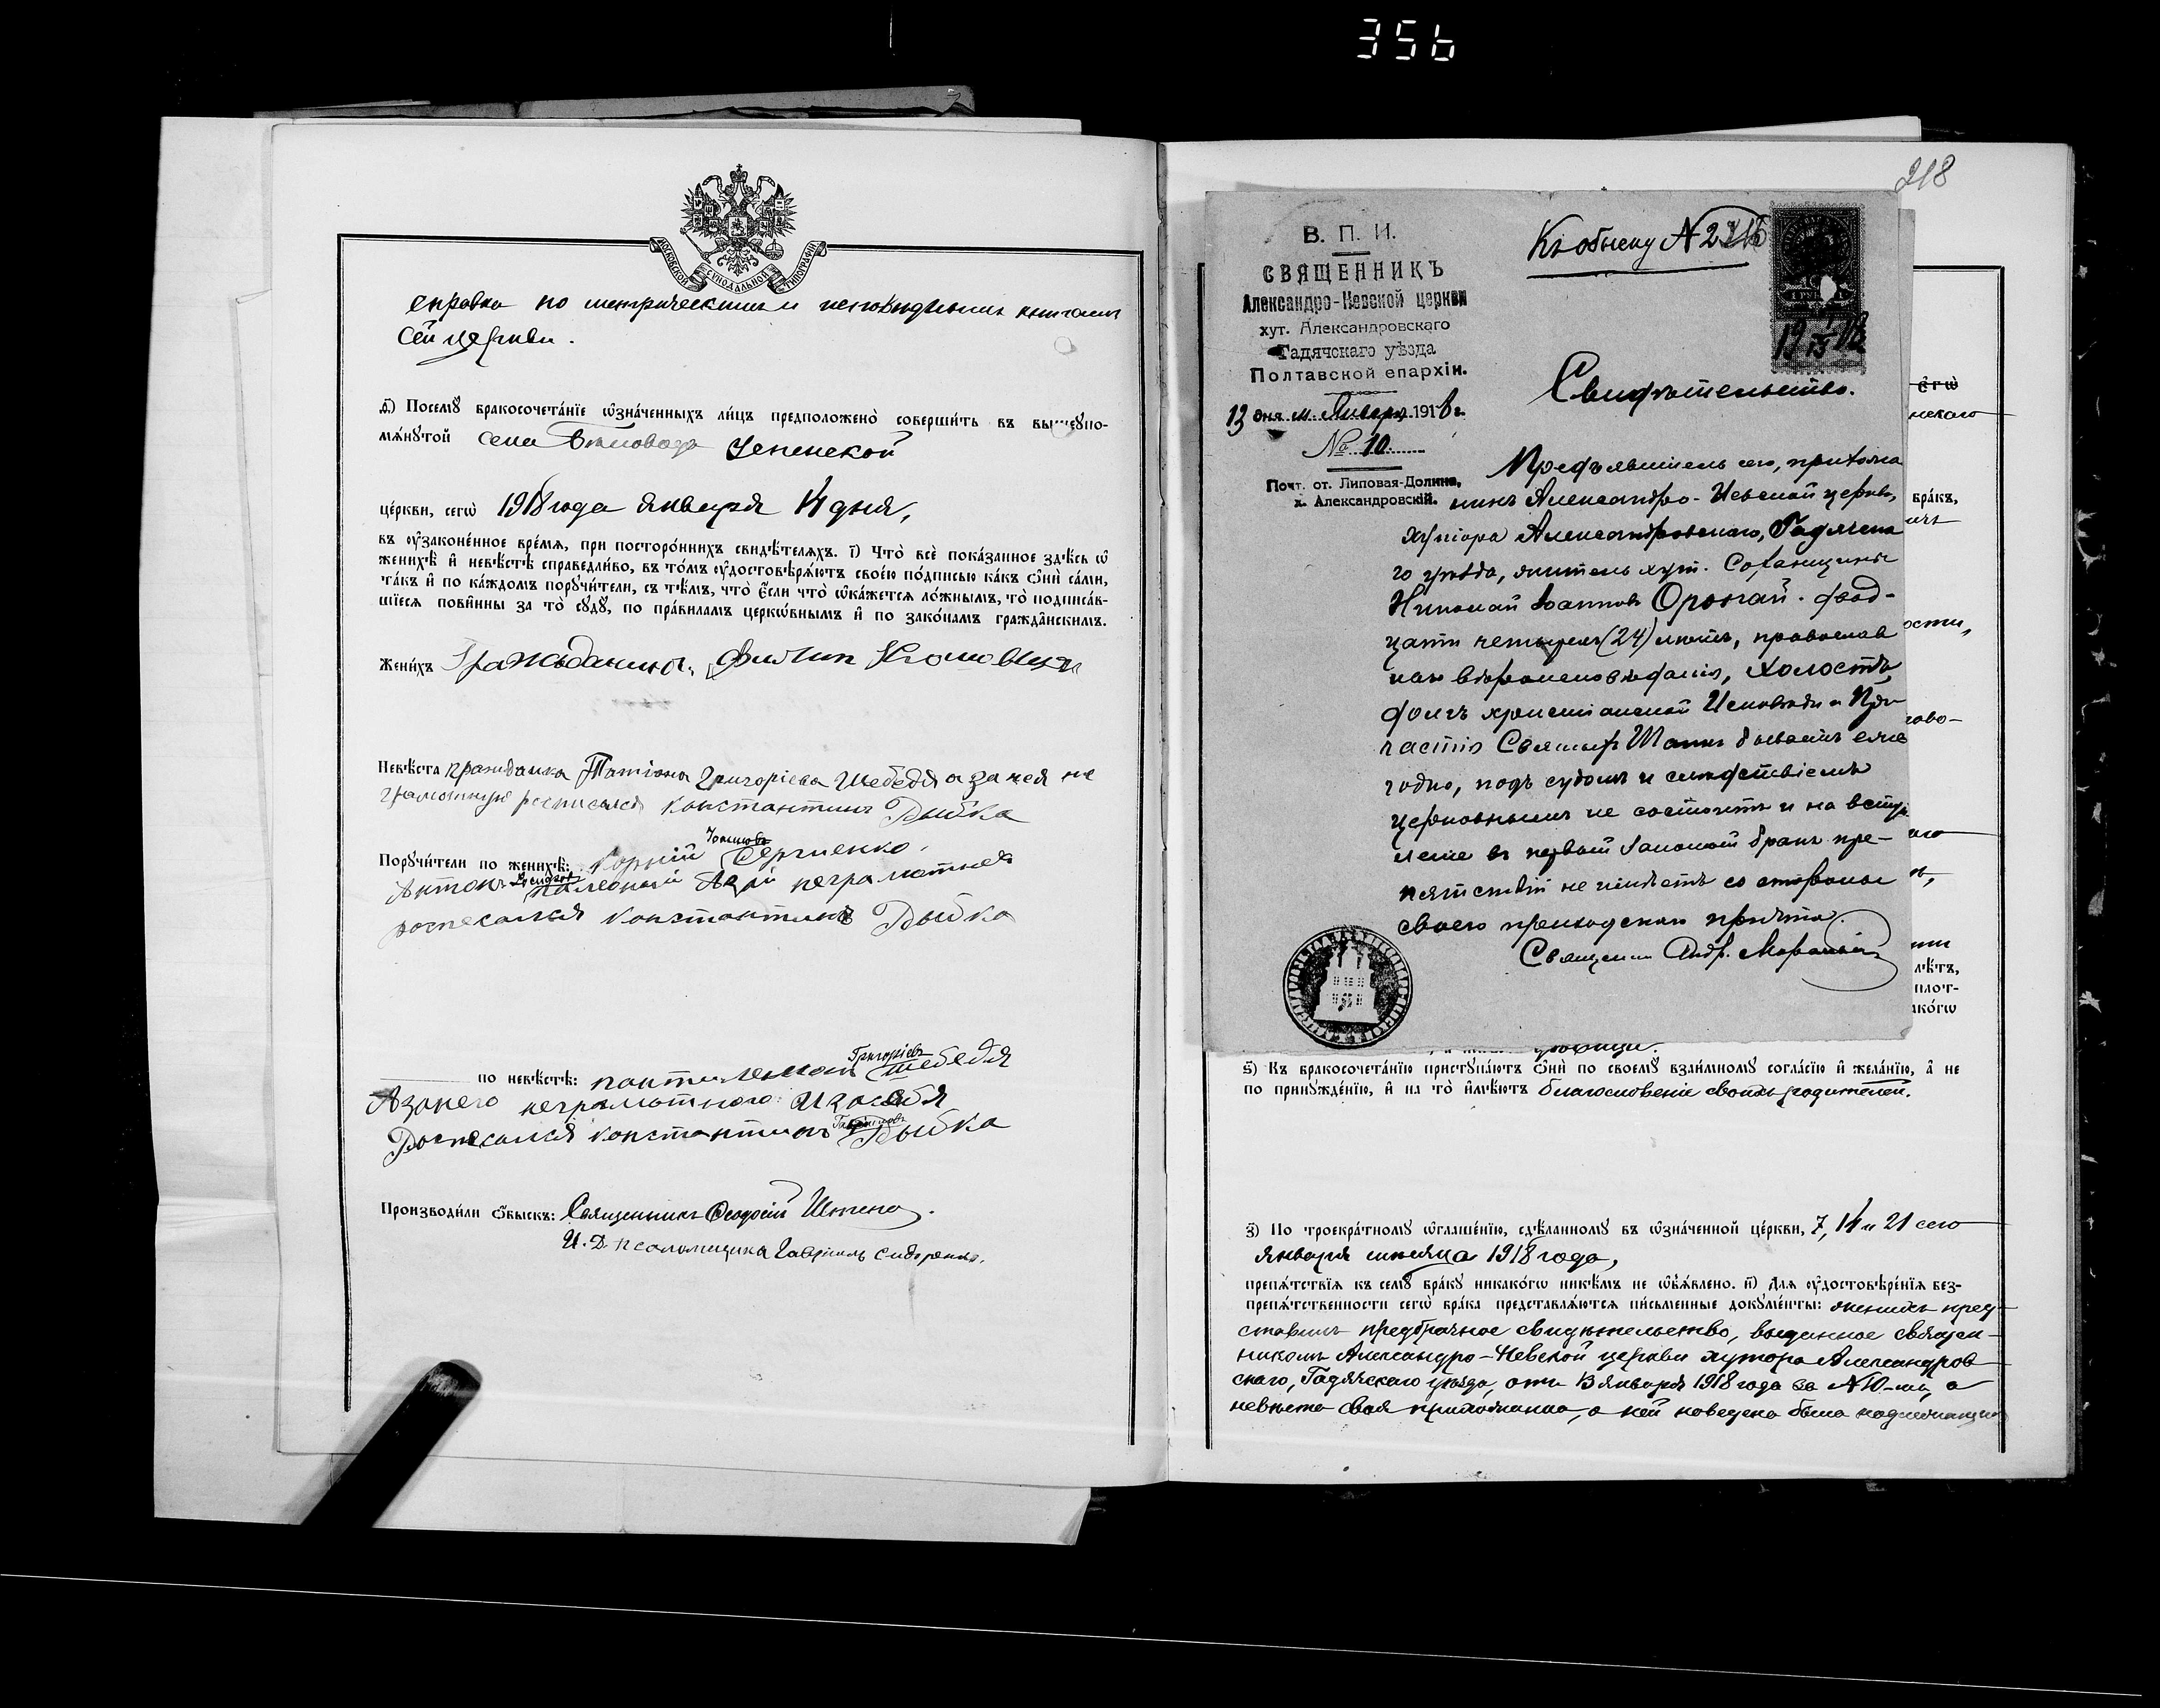 356
МОСКОВСКОЙ СѴНОДАЛЬНОЙ ТИПОГРАФІИ
справка по метрическимъ и исповѣднымъ книгамъ
сей церкви.
д҃) Посемꙋ бракосочета́ніе ѡзна́ченныхъ ли́цъ предположено̀ соверши́ть въ вышеꙋпо-
мѧ́нꙋтой села Бѣловода Успенской
це́ркви, сегѡ̀ 1918 года января 14 дня,
въ ᲂу҆законе́нное вре́мѧ, при посторо́ннихъ свидѣ́телѧхъ. і҃) Что̀ всѐ пока́занное здѣ́сь ѡ҆
женихѣ̀ и҆ невѣ́стѣ справедли́во, въ то́мъ ᲂу҆достовѣрѧ́ютъ свое́ю по́дписью ка́къ ѻ҆нѝ са́ми,
та́къ и҆ по ка́ждомъ порꙋчи́тели, съ тѣ́мъ, что̀ є҆́сли что̀ ѡ҆ка́жетсѧ ло́жнымъ, то̀ подписа́в-
шїесѧ пови́нны за то̀ сꙋдꙋ̀, по пра́виламъ церкѡ́внымъ и҆ по зако́намъ гражда́нскимъ.
Жени́хъ Гражданинъ Филип
Невѣ́ста гражданка Татіана Григоріева Шебедя а за нея не
грамотную росписался Константинъ Рыбка
Порꙋчи́тели по женихѣ̀: Корній Сергиенко.
Антонъ неграмотные
росписался Константинъ Рыбка
по невѣ́стѣ: пантилемон Григоріевъ Шебедя
А занего неграмотного и за себя
Росписался Константинъ Рыбка
Производи́ли ѻ҆́быскъ: Священникъ Феодосій
И. Д. псаломщика Гавріилъ Сидоренко.
218
В. П. И.
СВЯЩЕННИКЪ
Александро-Невской церкви
хут. Александровскаго
Гадячскаго уѣзда
Полтавской епархіи.
13 дня м. Января 1918 г.
№ 10
Почт. от. Липовая-Долина,
х. Александровскій.
Къ обыску №
1 РУБЛЬ
13 1/13 18
Свидѣтельство.
Предъявитель сего, прихожа
нинъ Александро-Невской церкви,
хутора Александровскаго, Гадячска
го уѣзда, житель хут.
Николай Іоанновъ двад-
цати четырехъ (24) лѣтъ, православ
наго вѣроисповѣданія, холостъ,
долгъ христіанской Исповѣди и При
частія Святыхъ Таинъ бываетъ еже
годно, подъ судомъ и слѣдствіемъ
церковнымъ не состоитъ и на всту
леніе въ первый законный бракъ пре-
пятствій не имѣетъ со стороны
своего приходскаго причта.
Священникъ Андр.
є҆гѡ̀
нскаго
бра́къ,
ости,
ово-
лѣ́тъ,
плот-
ако́гѡ
ѕ҃) Къ бракосочета́нїю пристꙋпа́ютъ ѻ҆нѝ по своемꙋ̀ взаи́мномꙋ согла́сїю и҆ жела́нїю, а҆ не
по принꙋжде́нїю, и҆ на то̀ и҆мѣ́ютъ благословеніе своихъ родителей.
з҃) По троекра́тномꙋ ѡ҆глаше́нїю, сдѣ́ланномꙋ въ ѡ҆зна́ченной це́ркви, 7, 14 и 21 сего
января мѣсяца 1918 года,
препѧ́тствїѧ къ семꙋ̀ бра́кꙋ никако́гѡ никѣ́мъ не ѡ҆б̾ѧ́влено. и҃) Длѧ ᲂу҆достовѣре́нїѧ без-
препѧ́тственности сегѡ̀ бра́ка представлѧ́ютсѧ пи́сьменные докꙋме́нты: женихъ пред-
ставилъ предбрачное свидѣтельство, выданное священ-
никомъ Александро-Невской церкви хутора Александров
скаго, Гадячскаго уѣзда, отъ 13 января 1918 года за №10-мъ, а
невѣста своя прихожанка, о ней наведена была надлежащая